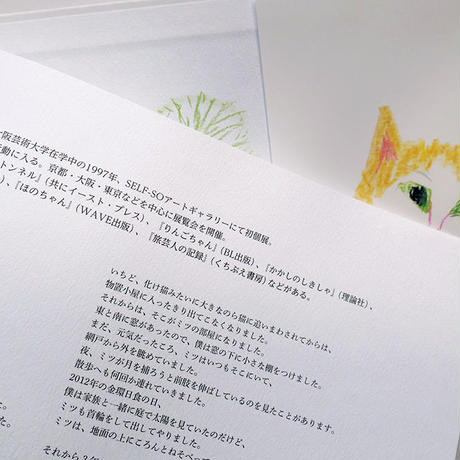 阪芸術大学在学中の1997年、SELF-SOアートギャラリーにて初個展。
動に入る。京都・大阪・東京などを中心に展覧会を開催。
トンネル』(共にイースト・プレス)、『りんごちゃん』(BL出版)、『かかしのしきしゃ』(理論社)、
、『ほのちゃん』(WAVE出版)、『旅芸人の記録』(くちぶえ書房)などがある。
いちど、化け猫みたいに大きなのら猫に追いまわされてからは、
物置小屋に入ったきり出てこなくなりました。
それからは、そこがミツの部屋になりました。
東と南に窓があったので、僕は窓の下に小さな棚をつけました。
まだ、元気だったころ、ミツはいつもそこにいて、
網戸から外を眺めていました。
夜、ミツが月を捕ろうと前肢を伸ばしているのを見たことがあります。
散歩へも何回か連れていきました。
2012年の金環日食の日、
僕は家族と一緒に庭で太陽を見ていたのだけど、
ミツも首輪をして出してやりました。
ミツは、地面の上にころんとねそべって
それから3年
た。